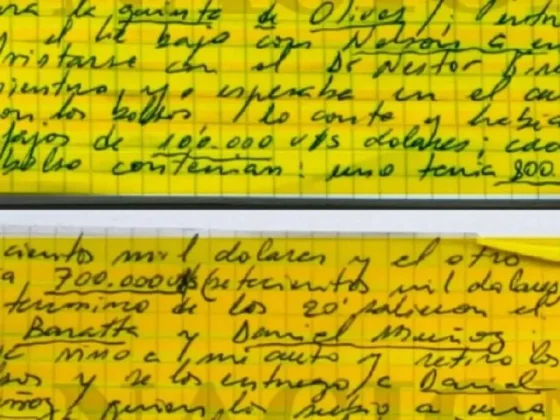 la quinta de Olivos
el Lic bajo con Nelson
con el Dr Nestor
y yo esperaba en el
con los bolsos / lo conto y habia
fajos de 100.000 u$s dolares; cad
bolso contenian: uno tenia 800.
cientos mil dolares y el otro
a 700.000 u$s (setecientos mil dolares
termino de los 20' salieron el
Baratta y Daniel Muñoz
vino a mi auto y retiro lo
sos y se los entrego a Daniel
ñoz quien los subio a una